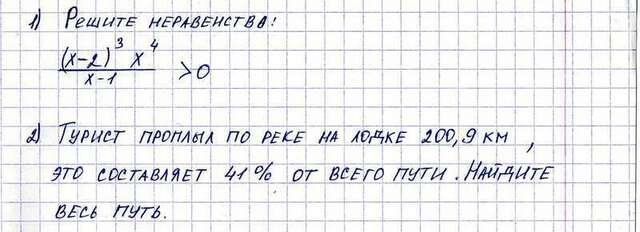 1) Решите неравенство:
(x-2)³ x⁴
x-1
>0
2) Турист проплыл по реке на лодке 200,9 км,
это составляет 41% от всего пути. Найдите
весь путь.